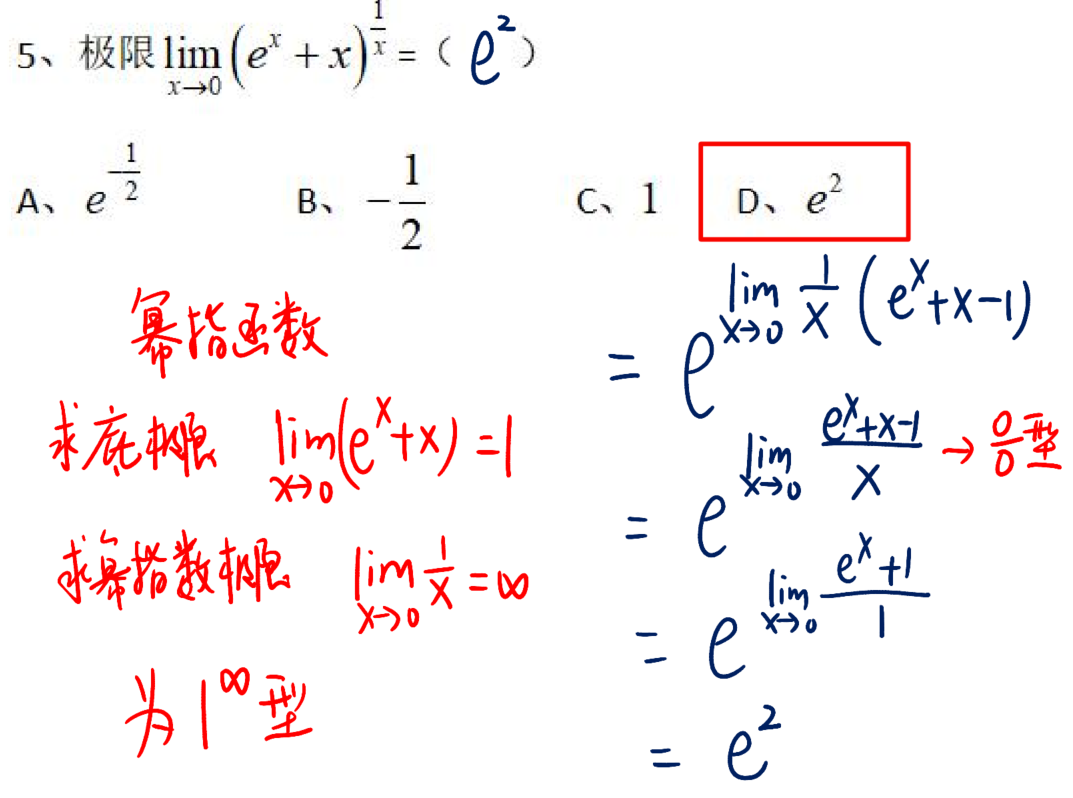 5、极限 lim x→0 (e^x + x)^(1/x) = （ e^2 ）
A、e^(-1/2) B、-1/2 C、1 D、e^2
幂指函数
求底极限 lim x→0 (e^x+x) = 1
求幂指数极限 lim x→0 1/x = ∞
为 1^∞ 型
= e^(lim x→0 1/x (e^x+x-1))
= e^(lim x→0 (e^x+x-1)/x) → 0/0 型
= e^(lim x→0 (e^x+1)/1)
= e^2